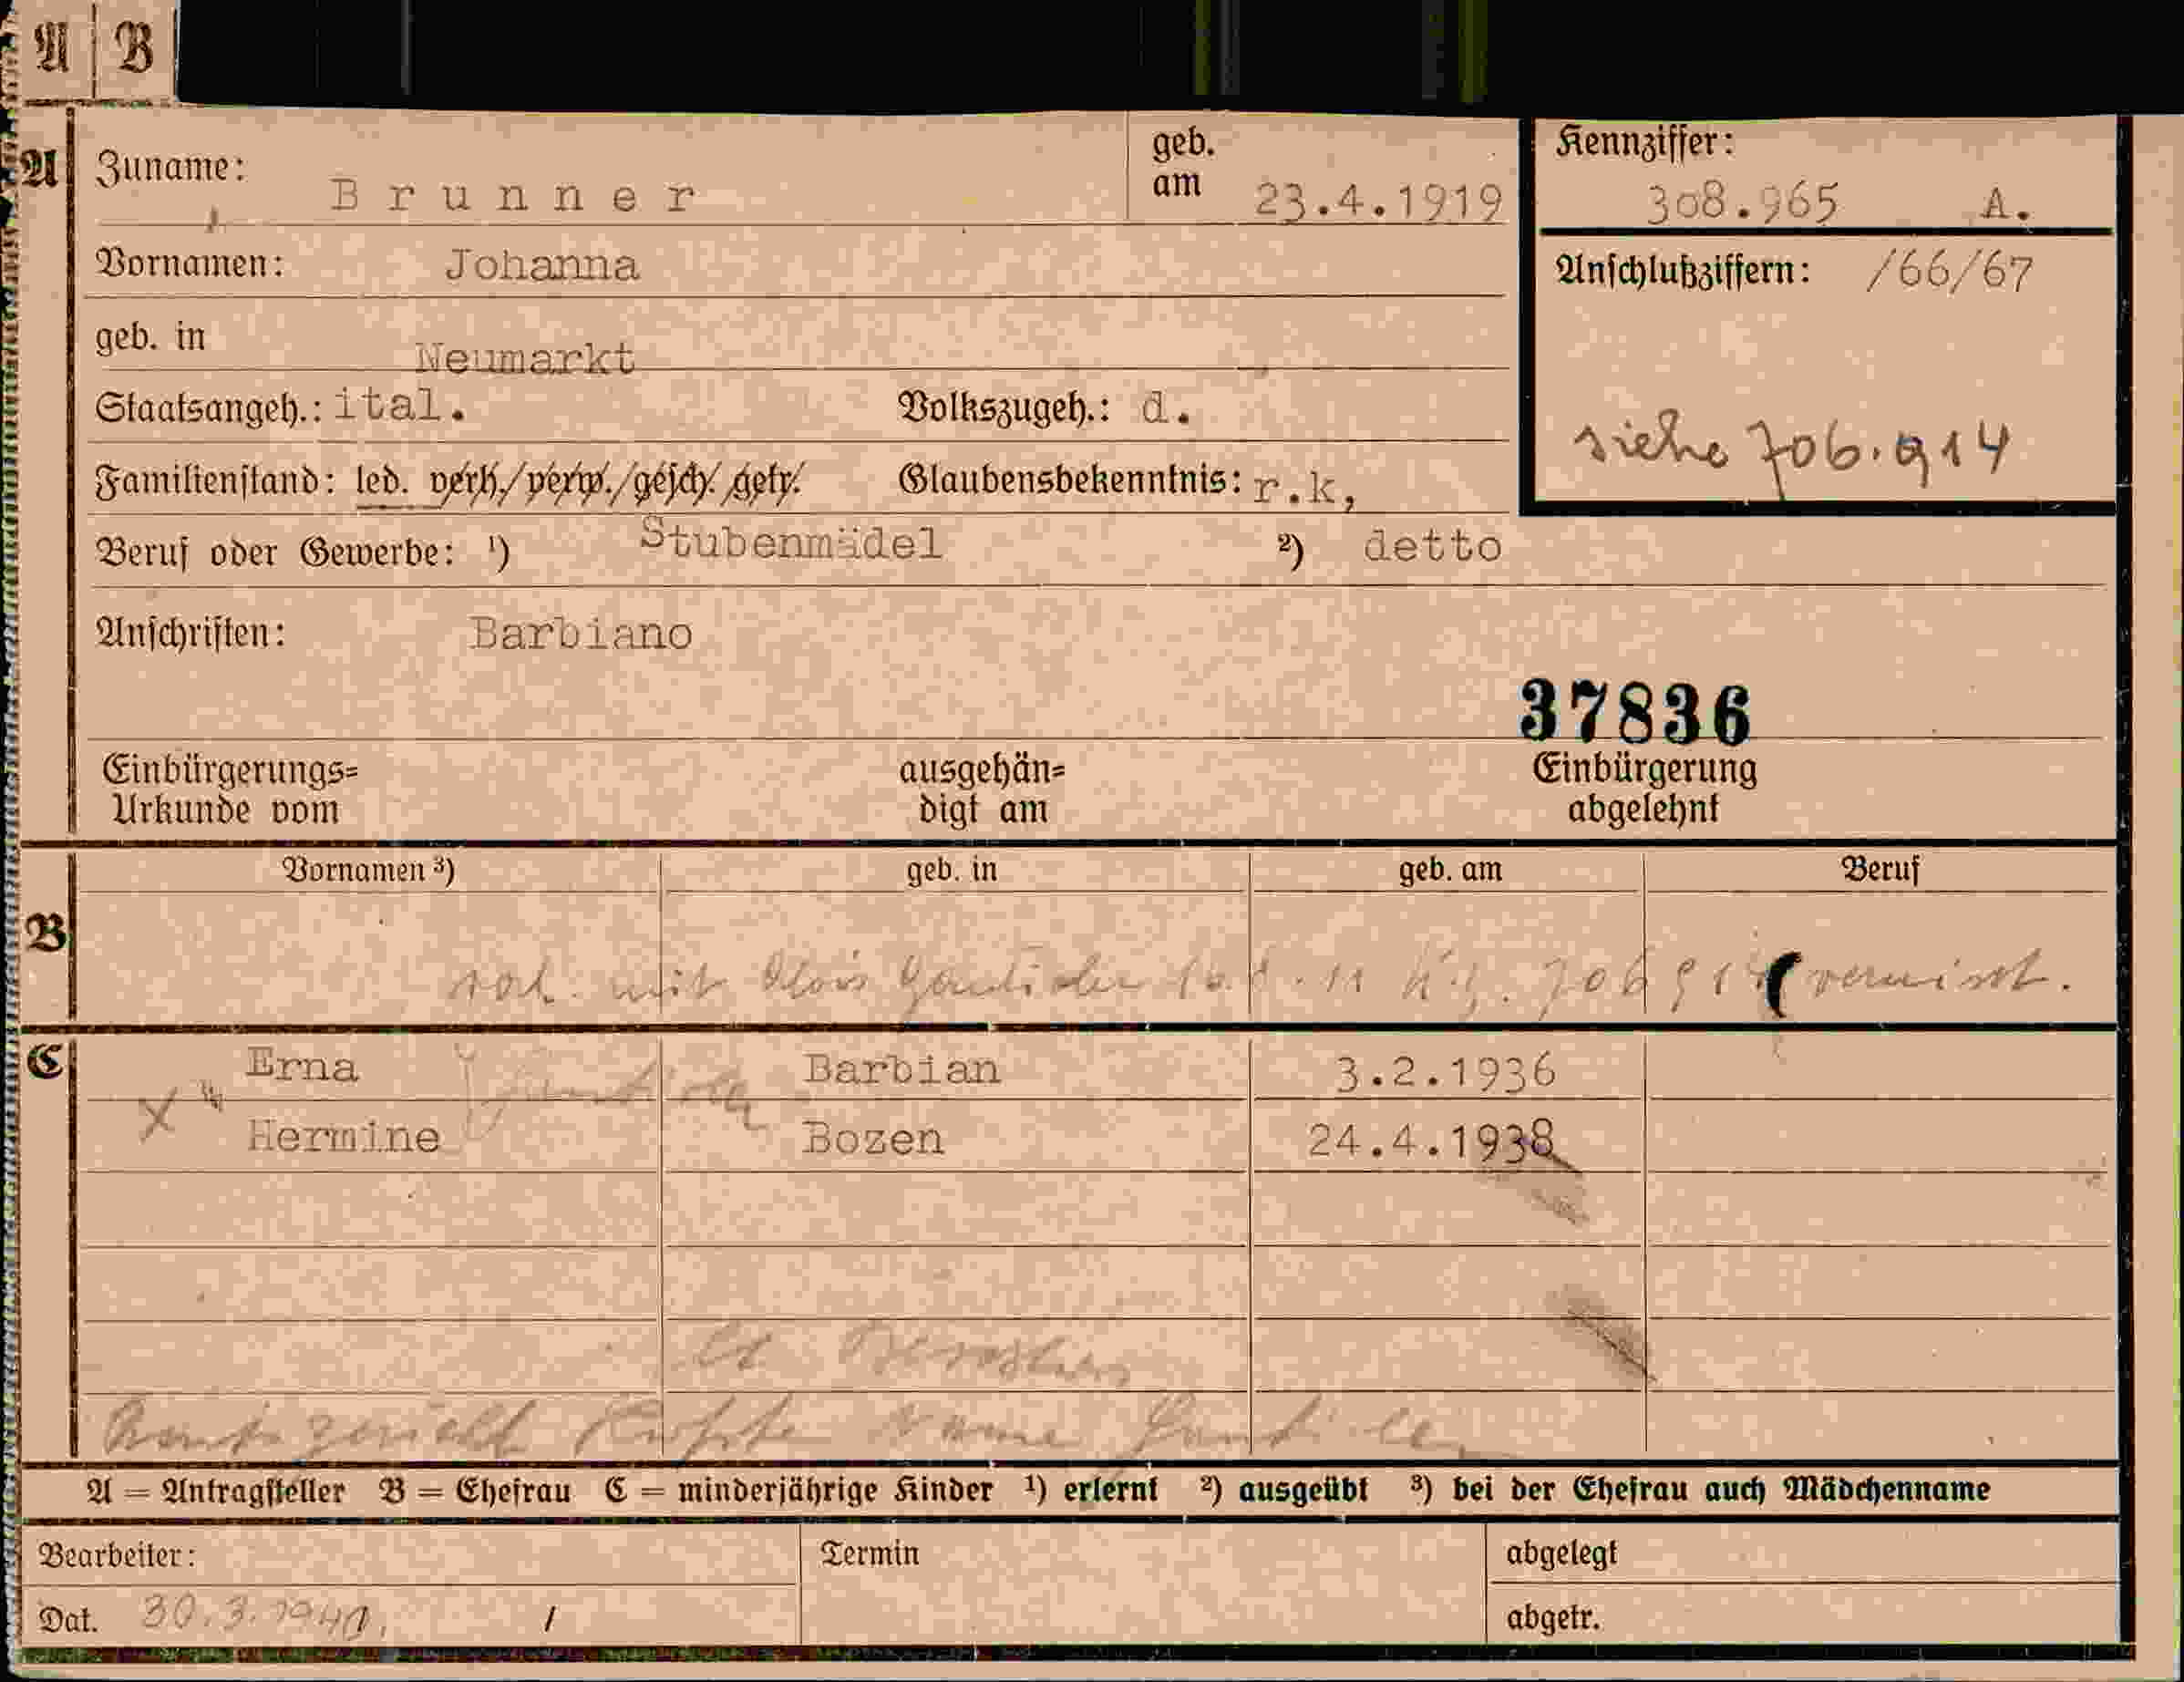 A B
A Zuname: Brunner geb. am 23.4.1919
Kennziffer: 308.965 A.
Vornamen: Johanna
Anschlußziffern: /66/67
geb. in Neumarkt
Staatsangeh.: ital. Volkszugeh.: d.
siehe 706.914
Familienstand: led. verh./verw./gesch./getr. Glaubensbekenntnis: r.k,
Beruf oder Gewerbe: ¹) Stubenmädel ²) detto
Anschriften: Barbiano
37836
Einbürgerungs= ausgehän= Einbürgerung
Urkunde vom digt am abgelehnt
Vornamen ³) geb. in geb. am Beruf
B
mit Alois 706914
C Erna Barbian 3.2.1936
x Hermine Bozen 24.4.1938
Name
A = Antragsteller B = Ehefrau C = minderjährige Kinder ¹) erlernt ²) ausgeübt ³) bei der Ehefrau auch Mädchenname
Bearbeiter: Termin abgelegt
Dat. 30.3.1940. / abgetr.